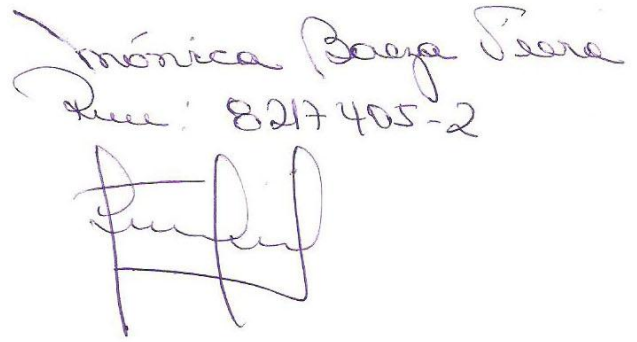 Mónica Baeza
Run: 8217405-2